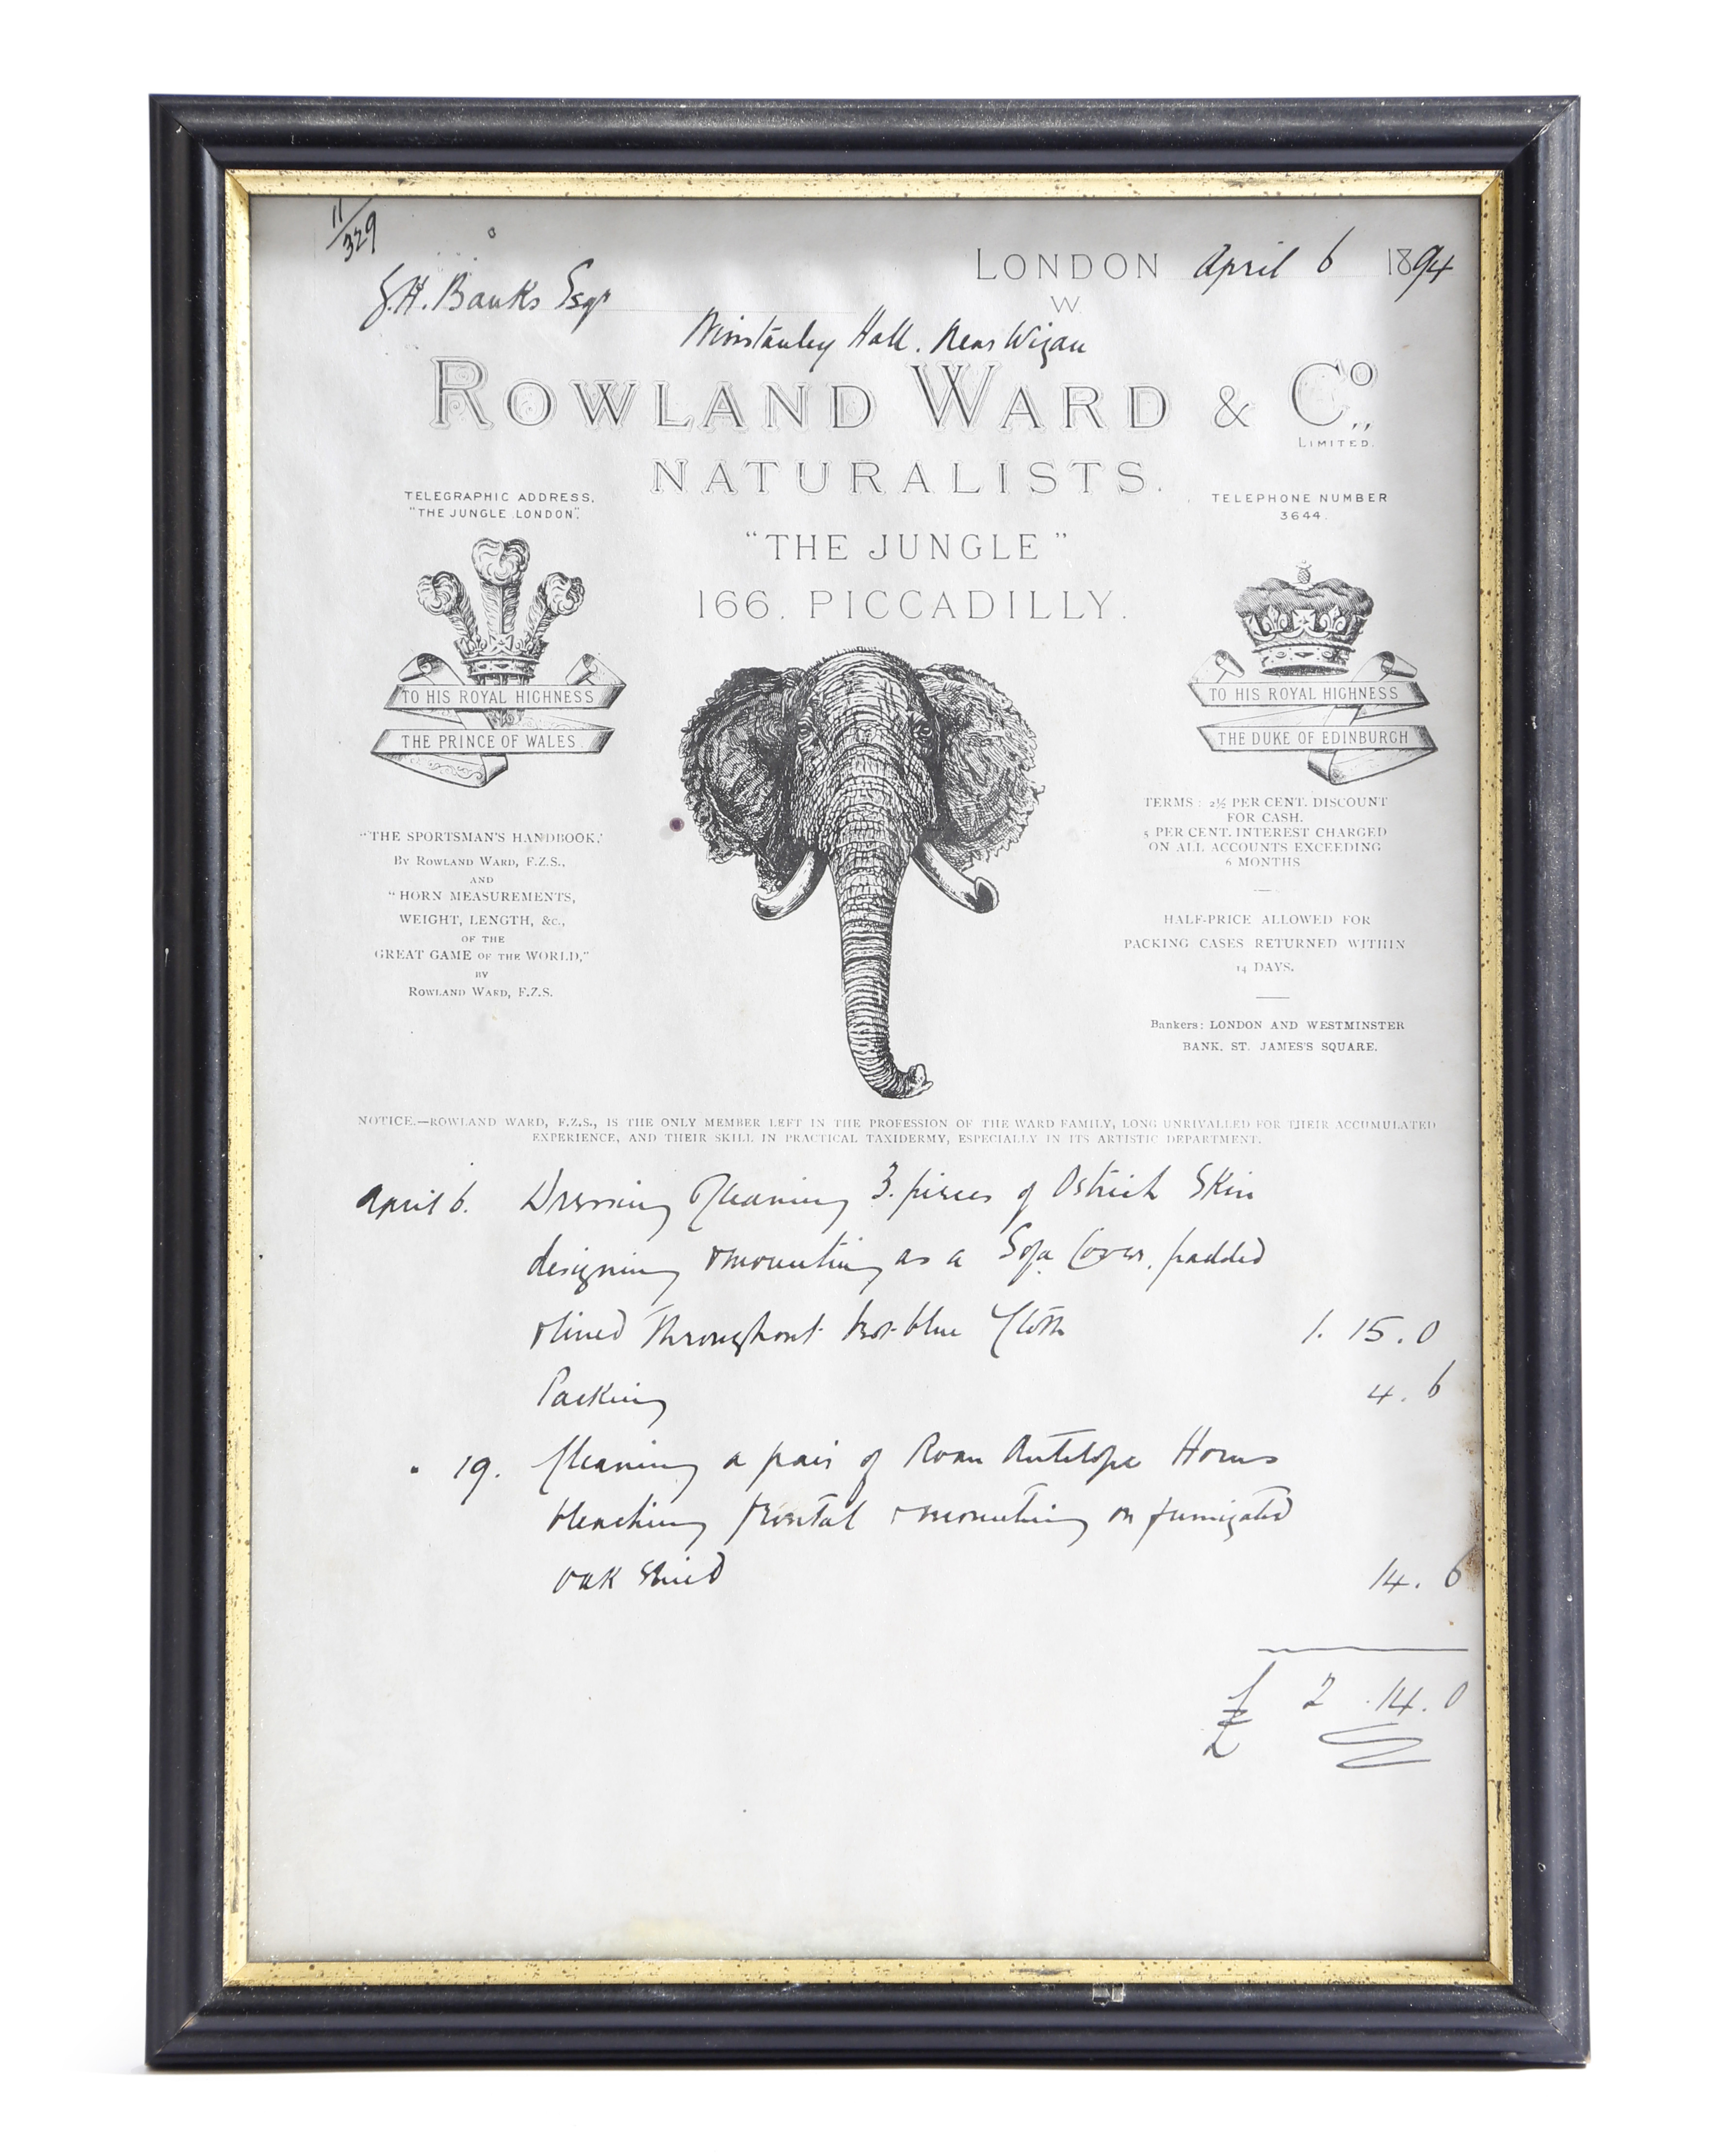 11/329
G.H. Banks Esqr
LONDON April 6 1894
W
Winstanley Hall. Near Wigan
ROWLAND WARD & Co.,
LIMITED.
NATURALISTS.
TELEGRAPHIC ADDRESS,
"THE JUNGLE LONDON".
TELEPHONE NUMBER
3644.
"THE JUNGLE"
166, PICCADILLY.
TO HIS ROYAL HIGHNESS
THE PRINCE OF WALES
TO HIS ROYAL HIGHNESS
THE DUKE OF EDINBURGH
"THE SPORTSMAN'S HANDBOOK,"
BY ROWLAND WARD, F.Z.S.,
AND
"HORN MEASUREMENTS,
WEIGHT, LENGTH, &c.,
OF THE
GREAT GAME OF THE WORLD,"
BY
ROWLAND WARD, F.Z.S.
TERMS: 2½ PER CENT. DISCOUNT
FOR CASH.
5 PER CENT. INTEREST CHARGED
ON ALL ACCOUNTS EXCEEDING
6 MONTHS
HALF-PRICE ALLOWED FOR
PACKING CASES RETURNED WITHIN
14 DAYS.
Bankers: LONDON AND WESTMINSTER
BANK, ST. JAMES'S SQUARE.
NOTICE.—ROWLAND WARD, F.Z.S., IS THE ONLY MEMBER LEFT IN THE PROFESSION OF THE WARD FAMILY, LONG UNRIVALLED FOR THEIR ACCUMULATED
EXPERIENCE, AND THEIR SKILL IN PRACTICAL TAXIDERMY, ESPECIALLY IN ITS ARTISTIC DEPARTMENT.
April 6. Dressing Cleaning 3. pieces of Ostrich Skin
designing & mounting as a Sofa Cover, padded
& lined throughout blue Cloth 1. 15. 0
Packing 4. 6
" 19. Cleaning a pair of Roan Antelope Horns
bleaching frontal & mounting on fumigated
oak shield 14. 6
£ 2. 14. 0